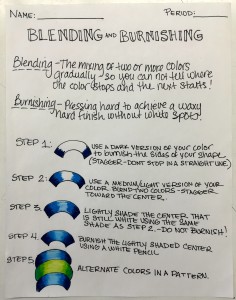 NAME: PERIOD:
BLENDING AND BURNISHING
Blending - The mixing of two or more colors
gradually - so you can not tell where
one color stops and the next starts!
Burnishing - Pressing hard to achieve a waxy
hard finish without white spots!
STEP 1: USE A DARK VERSION OF YOUR COLOR
TO BURNISH THE SIDES OF YOUR SHAPE
(STAGGER - DONT STOP IN A STRAIGHT LINE)
STEP 2: USE A MEDIUM/LIGHT VERSION OF YOUR
COLOR. BLEND TWO COLORS - STAGGER
TOWARD THE CENTER.
STEP 3: LIGHTLY SHADE THE CENTER THAT
IS STILL WHITE USING THE SAME
SHADE AS STEP 2 - DO NOT BURNISH!
STEP 4: BURNISH THE LIGHTLY SHADED CENTER
USING A WHITE PENCIL
STEP 5: ALTERNATE COLORS IN A PATTERN.